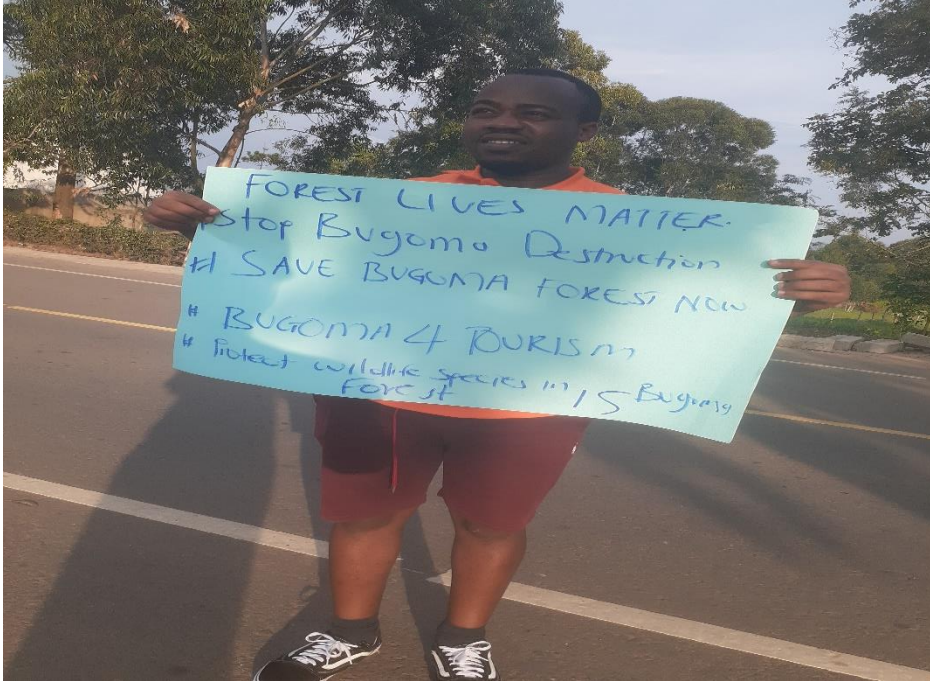 FOREST LIVES MATTER.
Stop Bugoma Destruction
# SAVE BUGOMA FOREST NOW
# BUGOMA 4 TOURISM
# Protect wildlife species in Bugoma
Forest